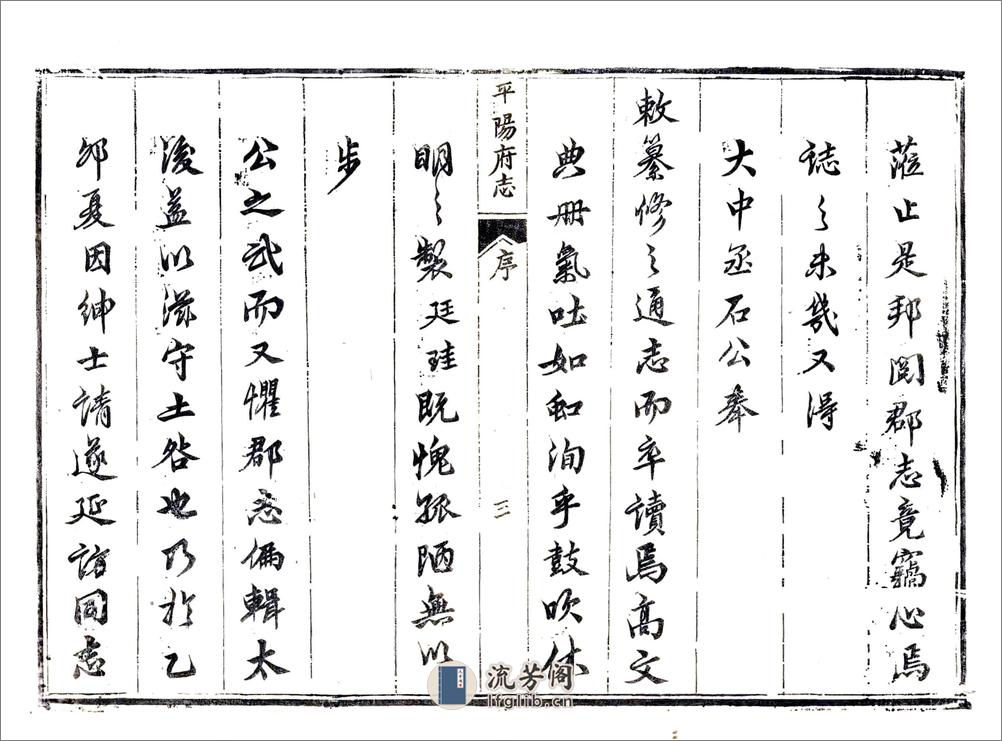 蒞止是邦閱郡志竟竊心焉
誌之未幾又得
大中丞石公奉
敕纂修之通志而卒讀焉高文
典册氣吐如虹洵乎鼓吹休
平陽府志
序
三
明之製廷珪既愧孤陋無以
步
公之武而又懼郡志偏輯太
後益以滋守土咎也乃於乙
卯夏因紳士請遂延訪同志
流芳閣
lfglib.cn